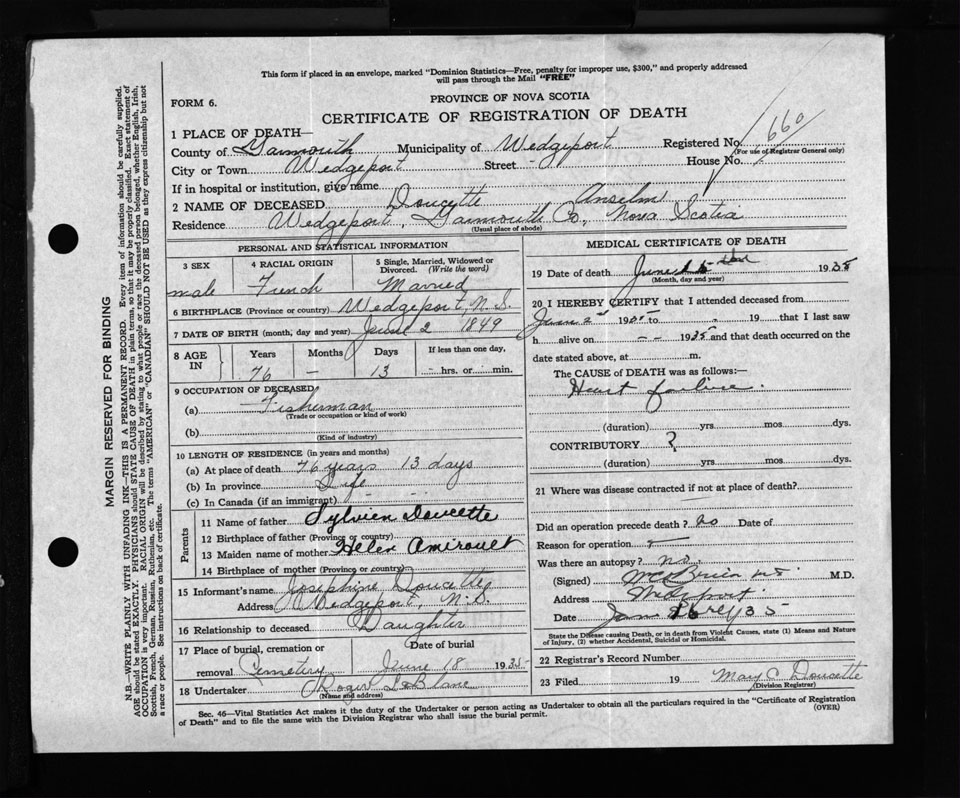 This form if placed in an envelope, marked "Dominion Statistics—Free, penalty for improper use, $300," and properly addressed
will pass through the Mail "FREE"
FORM 6.
PROVINCE OF NOVA SCOTIA
CERTIFICATE OF REGISTRATION OF DEATH
1 PLACE OF DEATH—
County of Yarmouth Municipality of Wedgeport Registered No. 660
(For use of Registrar General only)
City or Town Wedgeport Street - House No.
If in hospital or institution, give name
2 NAME OF DECEASED Doucette Anselm
Residence Wedgeport, Yarmouth Co, Nova Scotia
(Usual place of abode)
PERSONAL AND STATISTICAL INFORMATION
3 SEX 4 RACIAL ORIGIN 5 Single, Married, Widowed or Divorced. (Write the word)
male French Married
6 BIRTHPLACE (Province or country) Wedgeport, N.S.
7 DATE OF BIRTH (month, day and year) June 2 1849
8 AGE IN Years Months Days If less than one day,
76 — 13 - hrs. or - min.
9 OCCUPATION OF DECEASED
(a) Fisherman
(Trade or occupation or kind of work)
(b)
(Kind of industry)
10 LENGTH OF RESIDENCE (in years and months)
(a) At place of death 76 years 13 days
(b) In province Life
(c) In Canada (if an immigrant) - -
Parents
11 Name of father Sylvien Doucette
12 Birthplace of father (Province or country)
13 Maiden name of mother Helen Amirault
14 Birthplace of mother (Province or country)
15 Informant's name Josephine Doucette
Address Wedgeport, N.S.
16 Relationship to deceased Daughter
17 Place of burial, cremation or removal Date of burial
Cemetery June 18 1935
18 Undertaker Roger LeBlanc
(Name and address)
MEDICAL CERTIFICATE OF DEATH
19 Date of death June 15 1935
(Month, day and year)
20 I HEREBY CERTIFY that I attended deceased from
June 2 1935 to 19 that I last saw
h alive on - - 1935 and that death occurred on the
date stated above, at m.
The CAUSE of DEATH was as follows:—
Heart failure.
(duration) yrs mos dys.
CONTRIBUTORY ?
(duration) yrs mos dys.
21 Where was disease contracted if not at place of death?
Did an operation precede death? no Date of
Reason for operation
Was there an autopsy? no.
(Signed) M.D.
Address Wedgeport
Date 35
State the Disease causing Death, or in death from Violent Causes, state (1) Means and Nature
of Injury, (2) whether Accidental, Suicidal or Homicidal.
22 Registrar's Record Number
23 Filed 19 Mary C Doucette
(Division Registrar)
Sec. 46—Vital Statistics Act makes it the duty of the Undertaker or person acting as Undertaker to obtain all the particulars required in the "Certificate of Registration
of Death" and to file the same with the Division Registrar who shall issue the burial permit.
(OVER)
MARGIN RESERVED FOR BINDING
N.B.—WRITE PLAINLY WITH UNFADING INK—THIS IS A PERMANENT RECORD. Every item of information should be carefully supplied.
AGE should be stated EXACTLY. PHYSICIANS should STATE CAUSE OF DEATH in plain terms, so that it may be properly classified. Exact statement of
OCCUPATION is very important. RACIAL ORIGIN will be described by stating to what people or race the deceased person belonged, whether English, Irish,
Scottish, French, German, Russian, Ruthenian, etc. The terms "AMERICAN" or "CANADIAN" SHOULD NOT BE USED as they express citizenship but not
a race or people. See instructions on back of certificate.